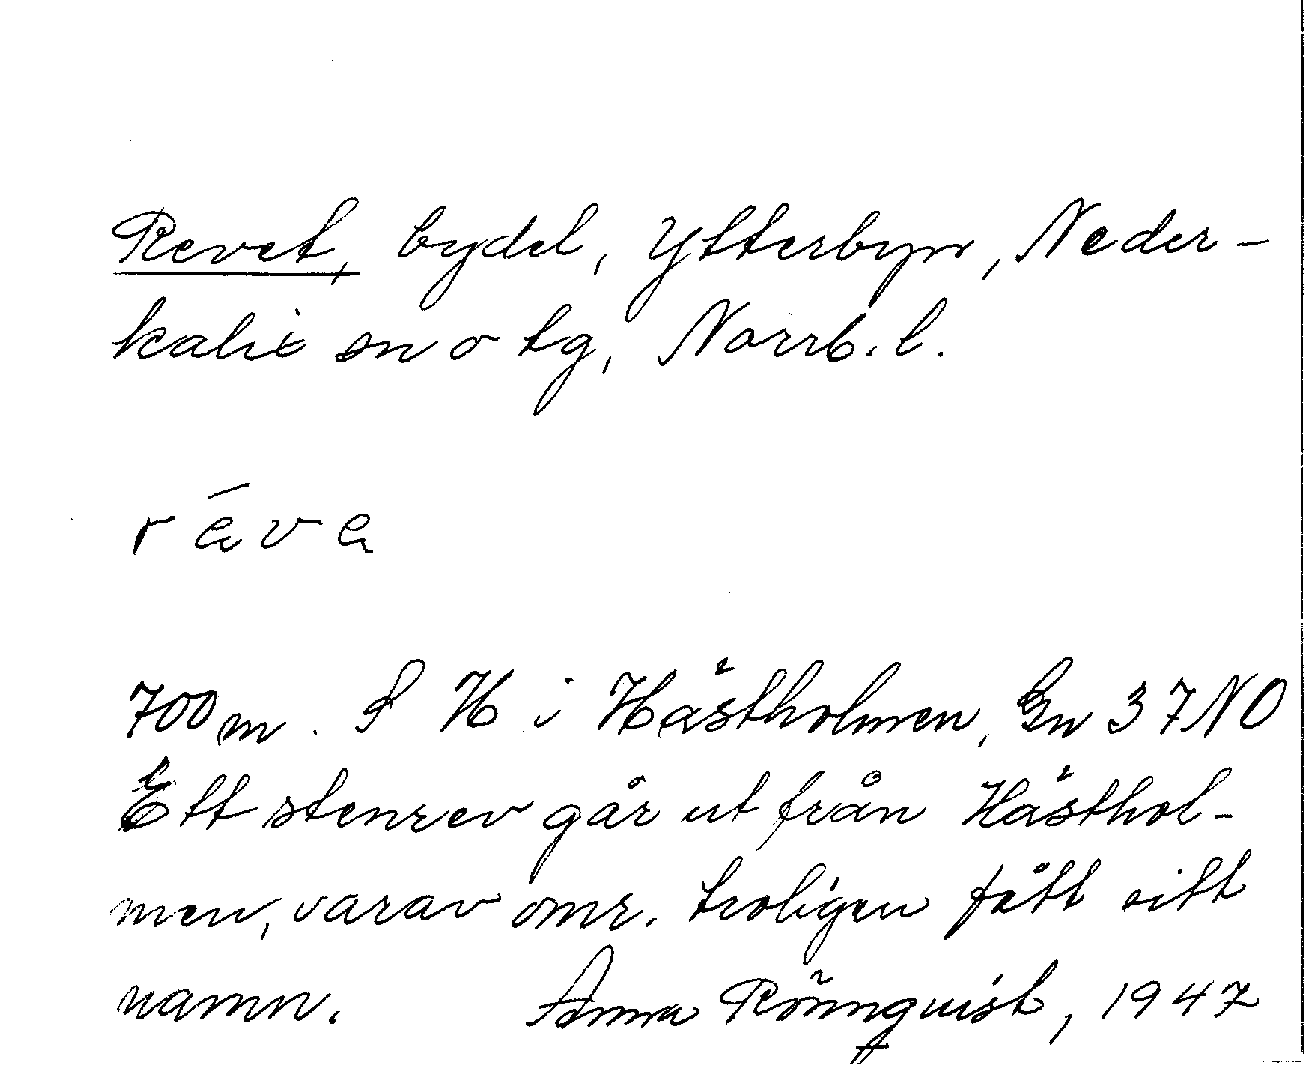 Revet, bydel, Ytterbyn, Neder-
kalix sn o tg, Norrb. l.
réve
700 m. S H i Hästholmen, Gn 37NO
Ett stenrev går ut från Hästhol-
men, varav omr. troligen fått sitt
namn. Anna Rönnquist, 1947